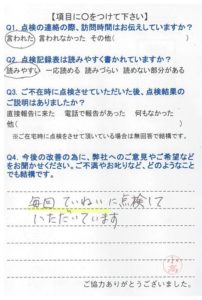 【項目に○をつけて下さい】
Q1. 点検の連絡の際、訪問時間はお伝えしていますか?
言われた 言われなかった その他( )
Q2. 点検記録表は読みやすく書かれていますか?
読みやすい 一応読める 読みづらい 読めない部分がある
Q3. ご不在時に点検させていただいた後、点検結果の
ご説明はありましたか?
直接報告に来た 電話で報告があった 何もなかった
他( )
※ご在宅時に点検をさせて頂いている場合は無回答で結構です。
Q4. 今後の改善の為に、弊社へのご意見やご希望など
をお聞かせください。ご不満やお叱りなど、どのようなこと
でも結構です。
毎回 ていねいに点検して
いただいています
ご協力ありがとうございました。